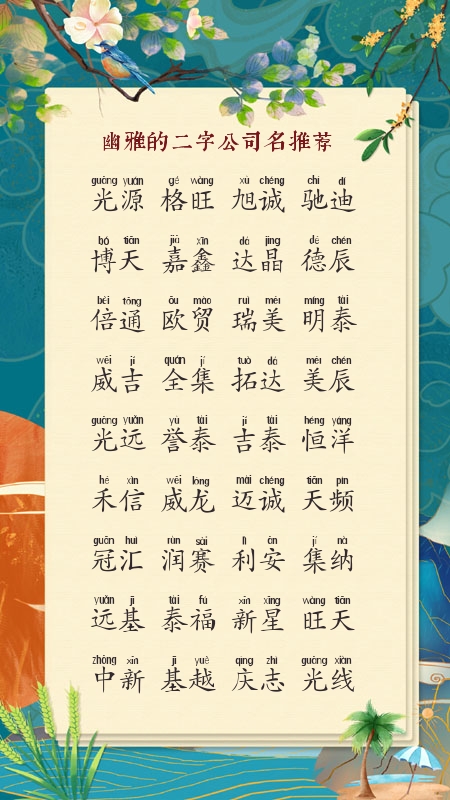 幽雅的二字公司名推荐
guāng yuán gé wàng xù chéng chí dí
光源 格旺 旭诚 驰迪
bó tiān jiā xīn dá jīng dé chén
博天 嘉鑫 达晶 德辰
bèi tōng ōu mào ruì měi míng tài
倍通 欧贸 瑞美 明泰
wēi jí quán jí tuò dá měi chén
威吉 全集 拓达 美辰
guāng yuǎn yù tài jí tài héng yáng
光远 誉泰 吉泰 恒洋
hé xìn wēi lóng mài chéng tiān pín
禾信 威龙 迈诚 天频
guān huì rùn sài lì ān jí nà
冠汇 润赛 利安 集纳
yuǎn jī tài fú xīn xīng wàng tiān
远基 泰福 新星 旺天
zhōng xīn jī yuè qìng zhì guāng xiàn
中新 基越 庆志 光线